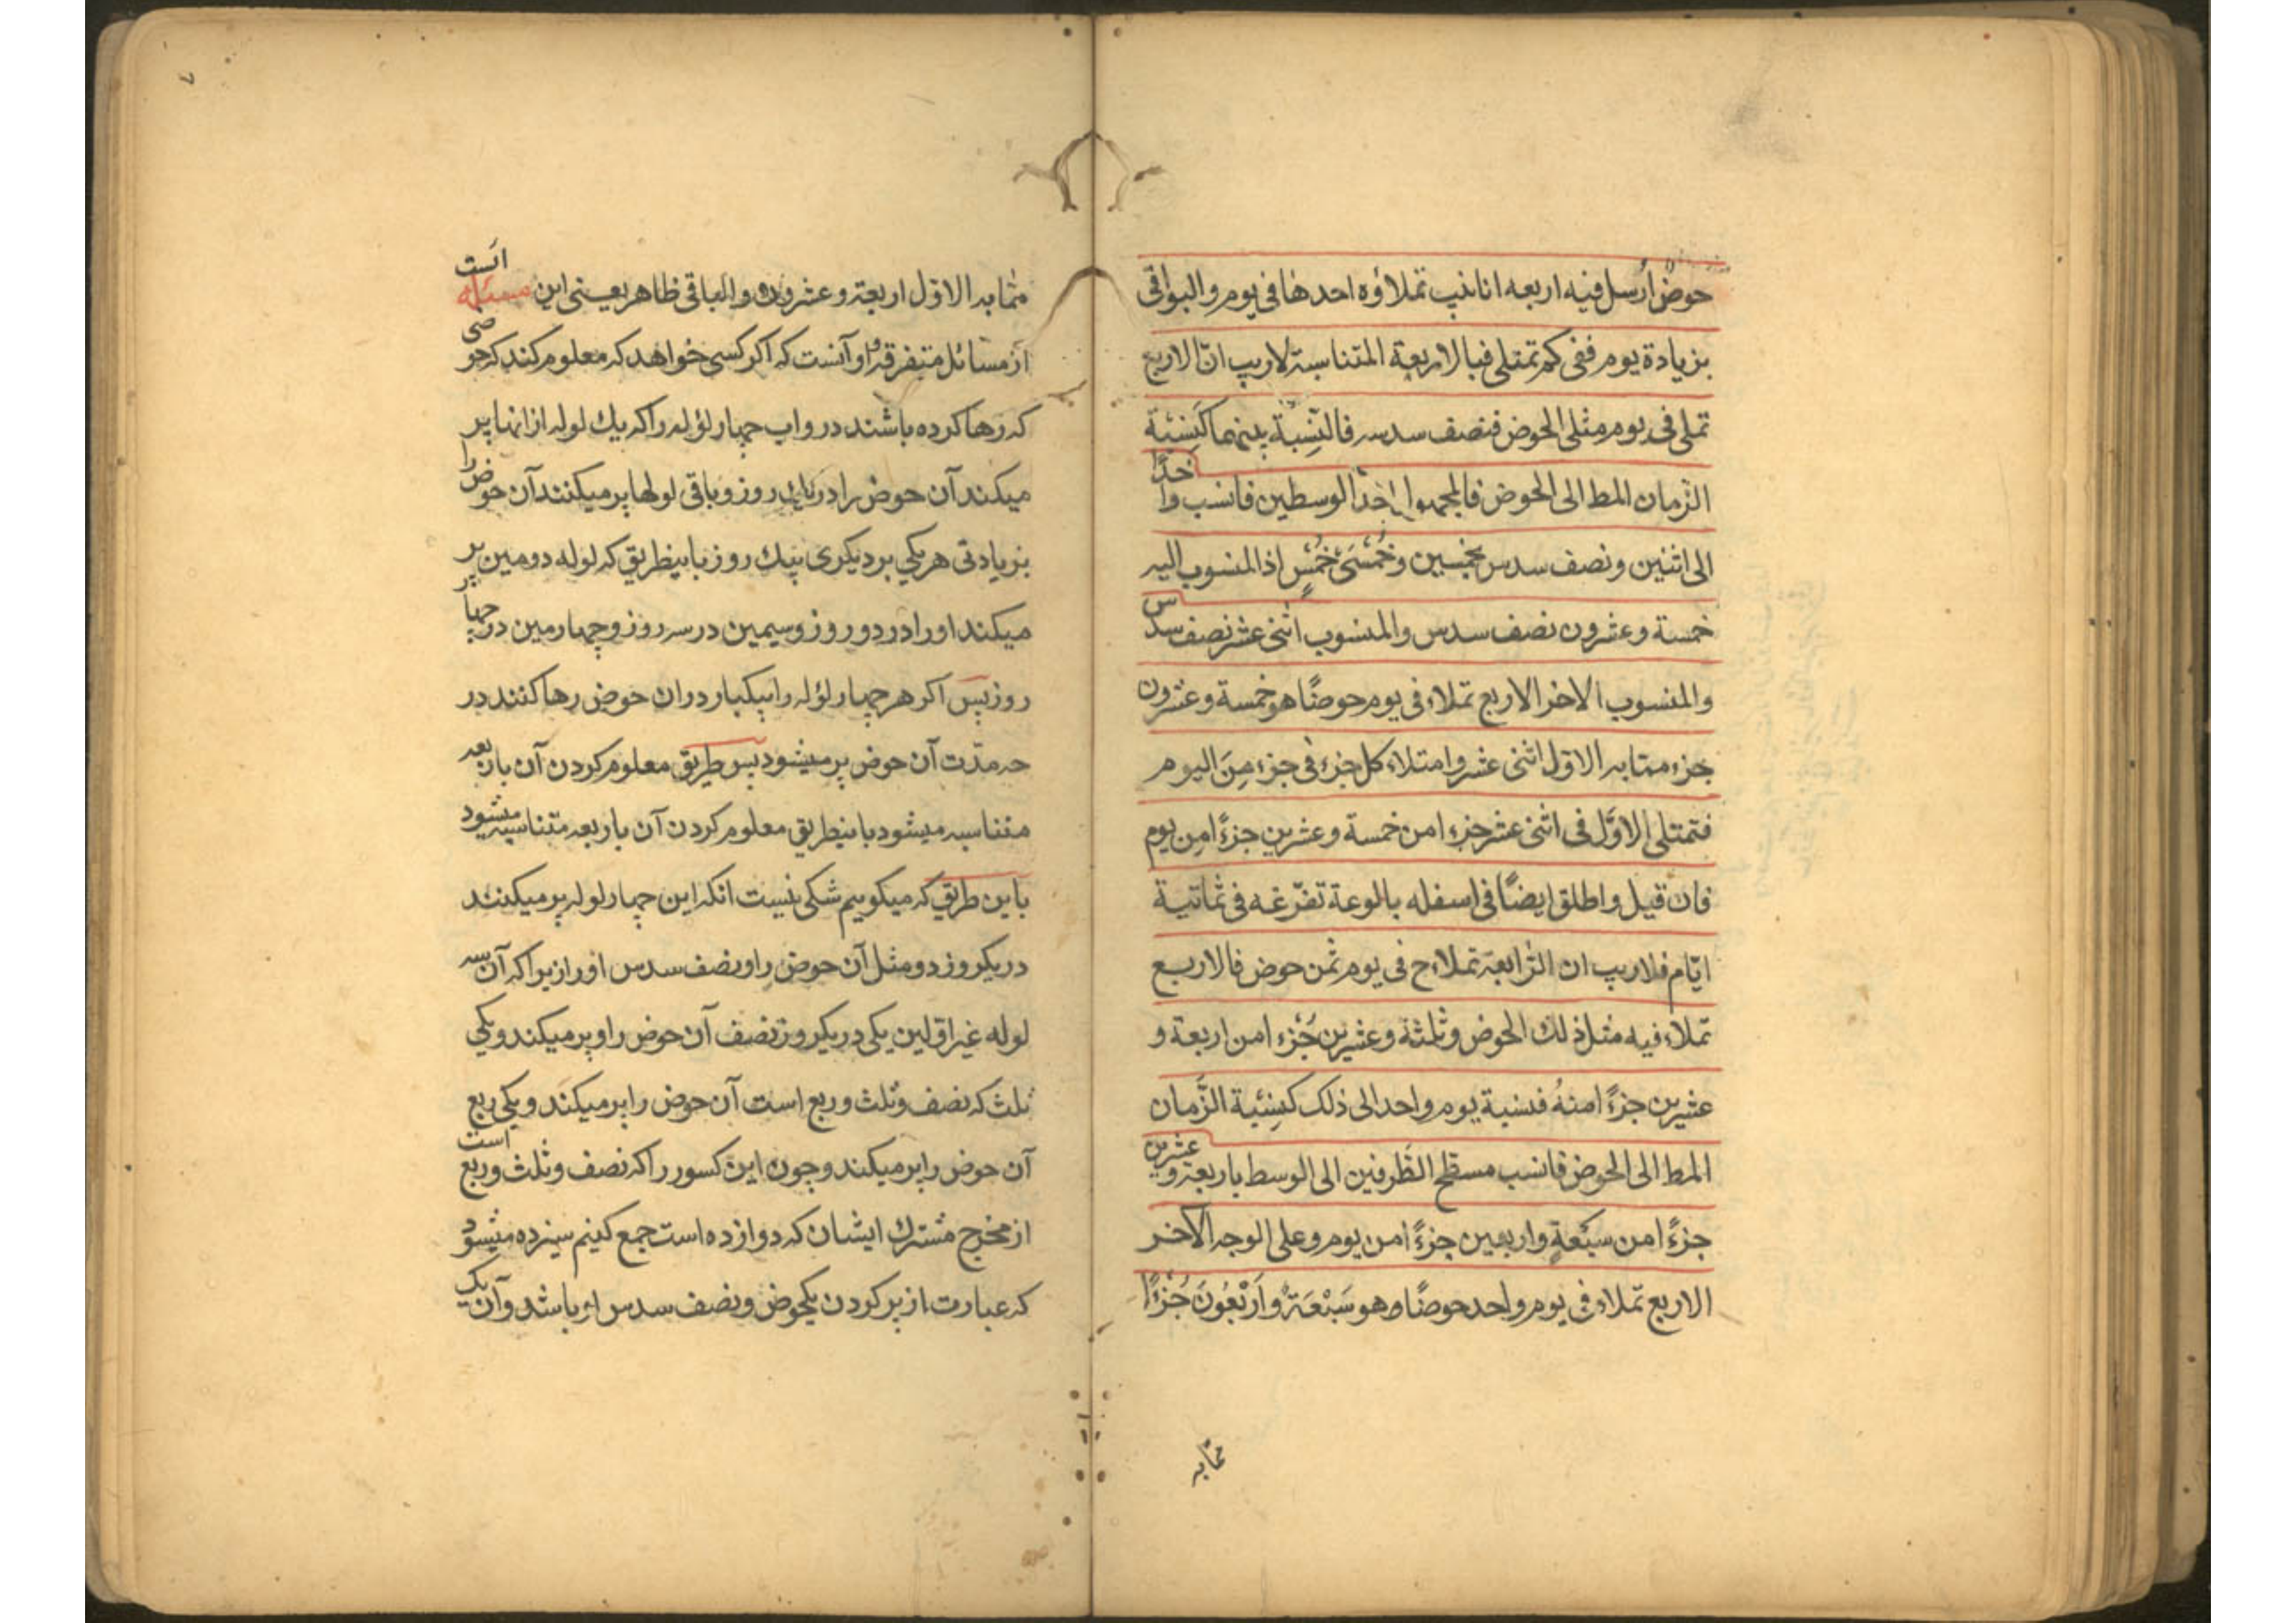 حوض ارسل فیه اربعه انابیب تملاؤه احدها فی یوم و البواقی
بزیادة یوم ففی کم تمتلی فبالاربعة المتناسبة لاریب انّ الاربع
تملی فی یوم مثلی الحوض فنصف سدسه فالنّسبة بینهما کنسبة
الزّمان المط الی الحوض فالمجهول احد الوسطین فانسب واحدًا
الی اثنین و نصف سدس بخمسین و خُمسَی خُمسٍ اذ المنسوب الیه
خمسة و عشرون نصف سدس و المنسوب اثنی عشر نصف سدس
و المنسوب الاخر الاربع تملاء فی یوم حوضًا هو خمسة و عشرون
جزء ممّا به الاوّل اثنی عشر و امتلاء کل جزء فی جزء مِنَ الیوم
فتمتلی الاوّل فی اثنی عشر جزء امن خمسة و عشرین جزءً امِن یوم
فان قیل و اطلق ایضًا فی اسفله بالوعة تفرّغه فی ثمانیة
ایّام فلاریب ان الرّابعة تملاء ح فی یوم ثمن حوض فالاربع
تملاء فیه مثل ذلك الحوض و ثلثة و عشرین جُزء امن اربعة و
عشرین جزءً امنهُ فنسبة یوم واحد الی ذلک کنسبة الزّمان
المط الی الحوض فانسب مسطح الطّرفین الی الوسط باربعة و عشرین
جزءً امن سبعةٍ و اربعین جزءً امن یوم و علی الوجه الآخر
الاربع تملاء فی یوم واحد حوضًا و هو سَبْعَةٌ و اَرْبَعُونَ جُزْءًا
ممّا به
۷
ممّا به الاوّل اربعة و عشرون و الباقی ظاهر یعنی این مسئله است
از مسائل متفرقه و او آنست که اکر کسی خواهد که معلوم کند که حوضی
که رها کرده باشند در و اب چهار لؤله را که یك لوله از انها پر
میکند آن حوض را در یك روز و باقی لولها پر میکنند آن حوض را
بزیادتی هر یکی بر دیکری بیك روز باینطریق که لوله دومین پر
میکند او را در دو روز و سیمین در سه روز و چهارمین در چهار
روز پس اکر هر چهار لؤله را بیکبار در ان حوض رها کنند در
چه مدّت آن حوض پر میشود پس طریق معلوم کردن آن باربعه
متناسبه میشود باینطریق معلوم کردن آن باربعه متناسبه میشود
باین طریق که میکوییم شکی نیست انکه این چهار لوله پر میکنند
در یکروز دو مثل آن حوض را و نصف سدس او را زیرا که آن سه
لوله غیر اوّلین یکی در یکروز نصف آن حوض را و پر میکند و یکی
ثلث که نصف و ثلث و ربع است آن حوض را پر میکند و یکی ربع
آن حوض را پر میکند و چون این کسور را که نصف و ثلث و ربع است
از مخرج مشترك ایشان که دوازده است جمع کنیم سیزده میشود
که عبارت از پر کردن یکحوض و نصف سدس او باشد و آن یک